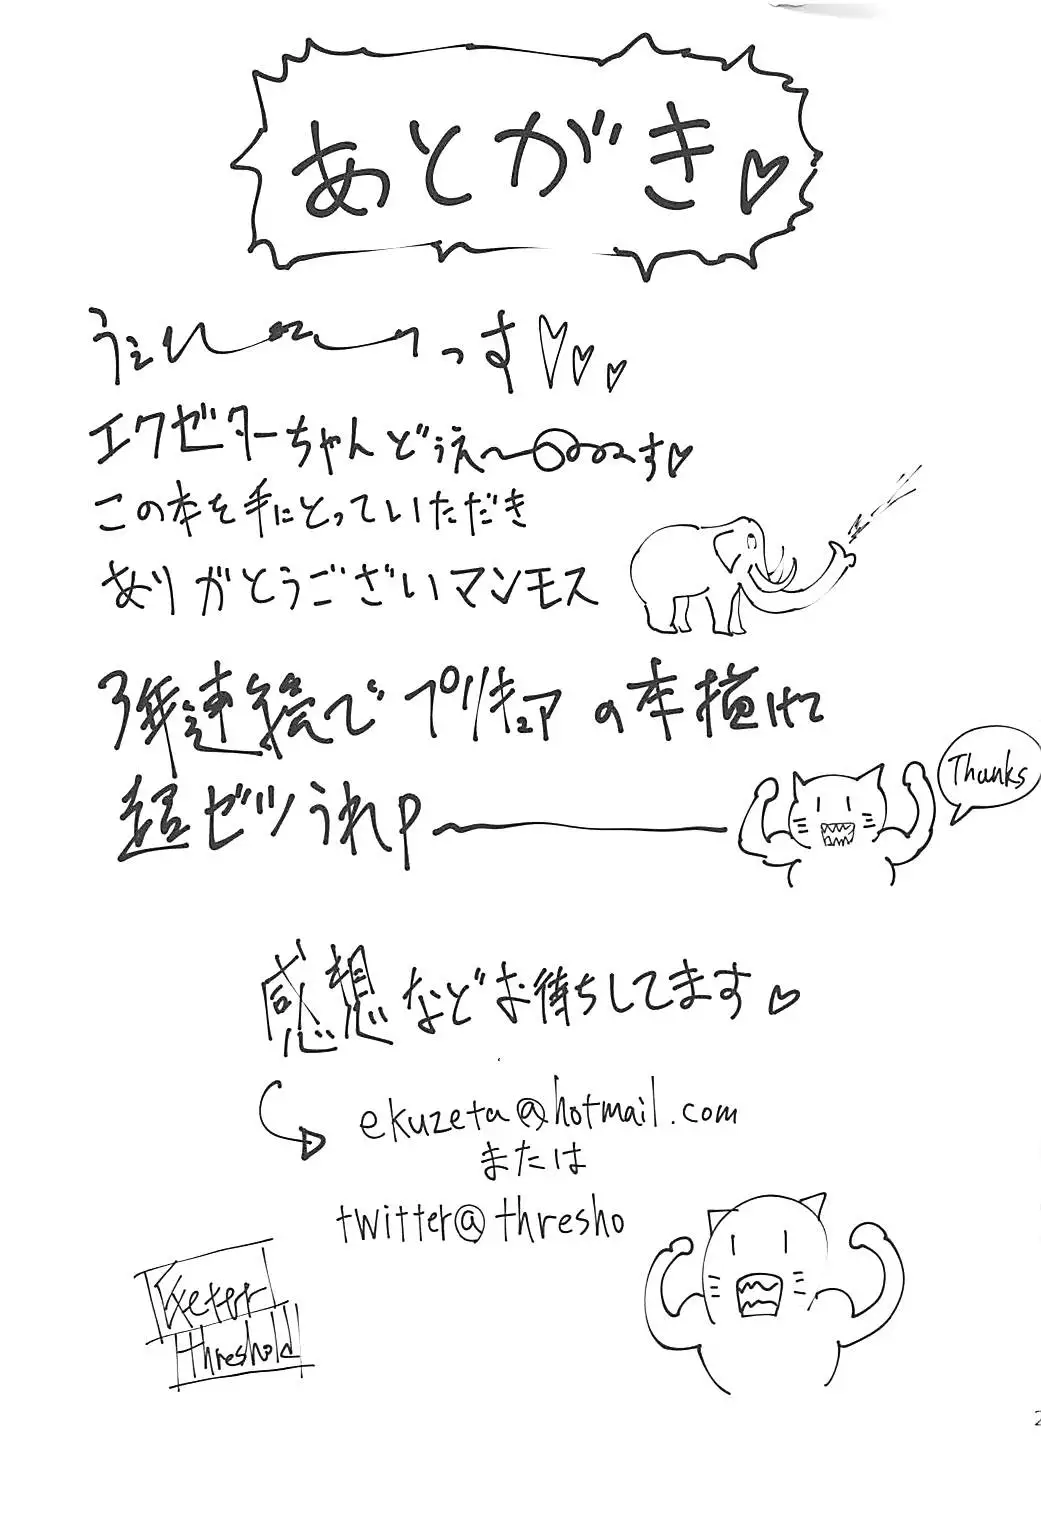 あとがき♡
うぇ〜〜っす♡♡♡
エクゼターちゃんどぅえ〜〜す♡
この本を手にとっていただき
ありがとうございマンモス
3年連続でプリキュアの本描けて
超ゼツうれP〜
Thanks
感想などお待ちしてます♡
ekuzeta@hotmail.com
または
twitter@thresho
Exeter
threshold
2